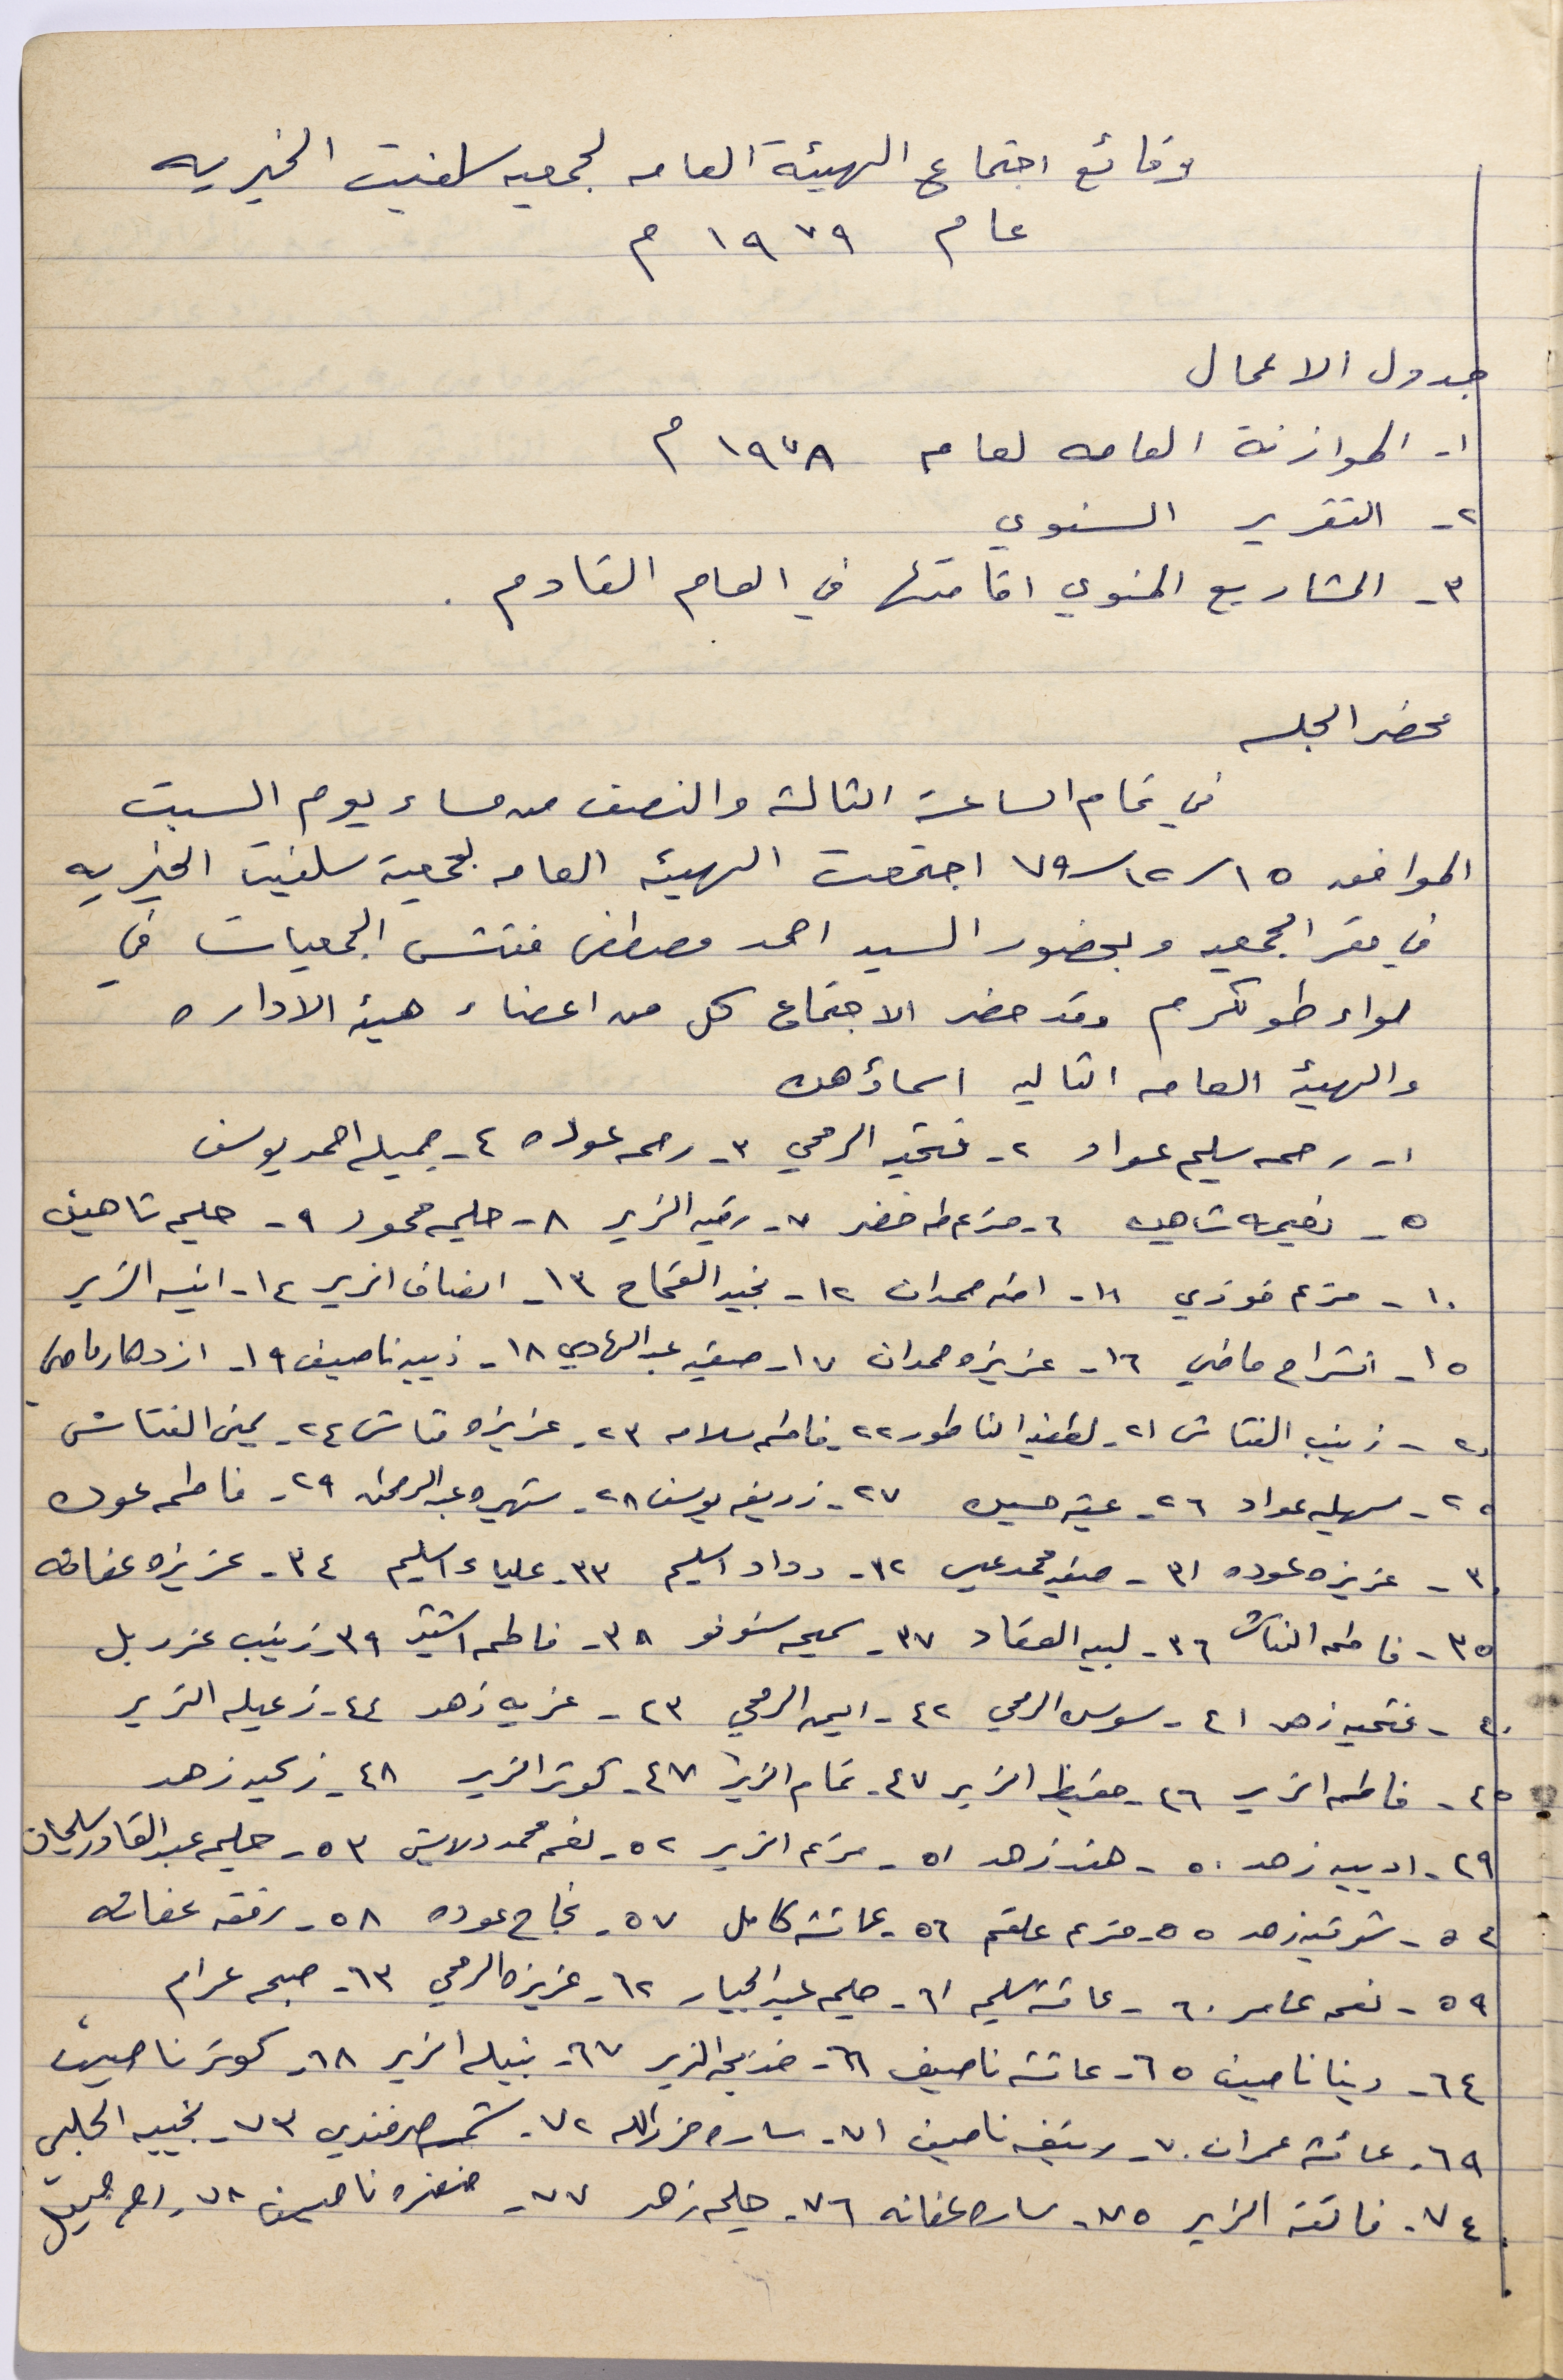 وقائع اجتماع الهيئة العامه لجمعيه سلفيت الخيريه
عام ١٩٧٩ م
جدول الاعمال
١- الموازنة العامه لعام ١٩٧٨ م
٢- التقرير السنوي
٣- المشاريع المنوي اقامتها في العام القادم .
محضر الجلسه
في تمام الساعة الثالثة والنصف من مساء يوم السبت
الموافق ١٥/١٢/٧٩ اجتمعت الهيئه العامه لجمعية سلفيت الخيريه
في مقر الجمعيه وبحضور السيد احمد مصطفى مفتش الجمعيات في
لواء طولكرم وقد حضر الاجتماع كل من اعضاء هيئة الاداره
والهيئة العامه التاليه اسماؤهن
١- رحمه سليم عواد ٢- فتحيه الرمحي ٣- رحمه عوده ٤- جميله احمد يوسف
٥- نعيمه شاهين ٦- مريم طه خضر ٧- رقيه الزير ٨- حليمه محمود ٩- حليمه شاهين
١٠- مريم فوزي ١١- امنه حمدان ١٢- نجيه القحاح ١٣- انصاف الزير ١٤- انيسه الزير
١٥- انشراح ماضي ١٦- عزيزه حمدان ١٧- صفيه عبد الهادي ١٨- ذيبه ناصيف ١٩- ازدهار ماضي
٢٠- زينب الفتاش ٢١- لطفيه الناطور ٢٢- فاطمه سلامه ٢٣- عزيزه فتاش ٢٤- يمنى الفتاش
٢٥- سهيله عواد ٢٦- حسين ٢٧- زريفه يوسف ٢٨- شهيره عبد الرحمن ٢٩- فاطمه عوده
٣٠- عزيزه عوده ٣١- صفيه محمد عيسى ٣٢- وداد اسليم ٣٣- علياء اسليم ٣٤- عزيزه عفانه
٣٥- فاطمه الفتاش ٣٦- لبيبه العقاد ٣٧- سميحه ٣٨- فاطمه اشتيه ٣٩- زينب عزريل
٤٠- فتحيه زهد ٤١- سوسن الرمحي ٤٢- ايمن الرمحي ٤٣- عزيه زهد ٤٤- زعيله الزير
٤٥- فاطمه الزير ٤٦- حفيظه الزير ٤٧- تمام الزير ٤٧- كوثر الزير ٤٨- زهد
٤٩- اديبه زهد ٥٠- هند زهد ٥١- مريم الزير ٥٢- نعمه محمد درويش ٥٣- حليمه عبد القادر سليمان
٥٤- شوقيه زهد ٥٥- مريم علقم ٥٦- عائشه كامل ٥٧- نجاح عوده ٥٨- رفقه عفانه
٥٩- نعمه عامر ٦٠- عائشه سليم ٦١- حليمه عبد الجبار ٦٢- عزيزه الرمحي ٦٣- صبحه عرام
٦٤- دينا ناصيف ٦٥- عائشه ناصيف ٦٦- خديجه الزير ٦٧- نبيله الزير ٦٨- كوثر ناصيف
٦٩- عائشه عمران ٧٠- ناصيف ٧١- ساره رزق الله ٧٢- شمسه صرفندي ٧٣- نجيبه الجلبي
٧٤- فائقه الزير ٧٥- ساره عفانه ٧٦- حليمه زهد ٧٧- خضره ناصيف ٧٨- ام جميل